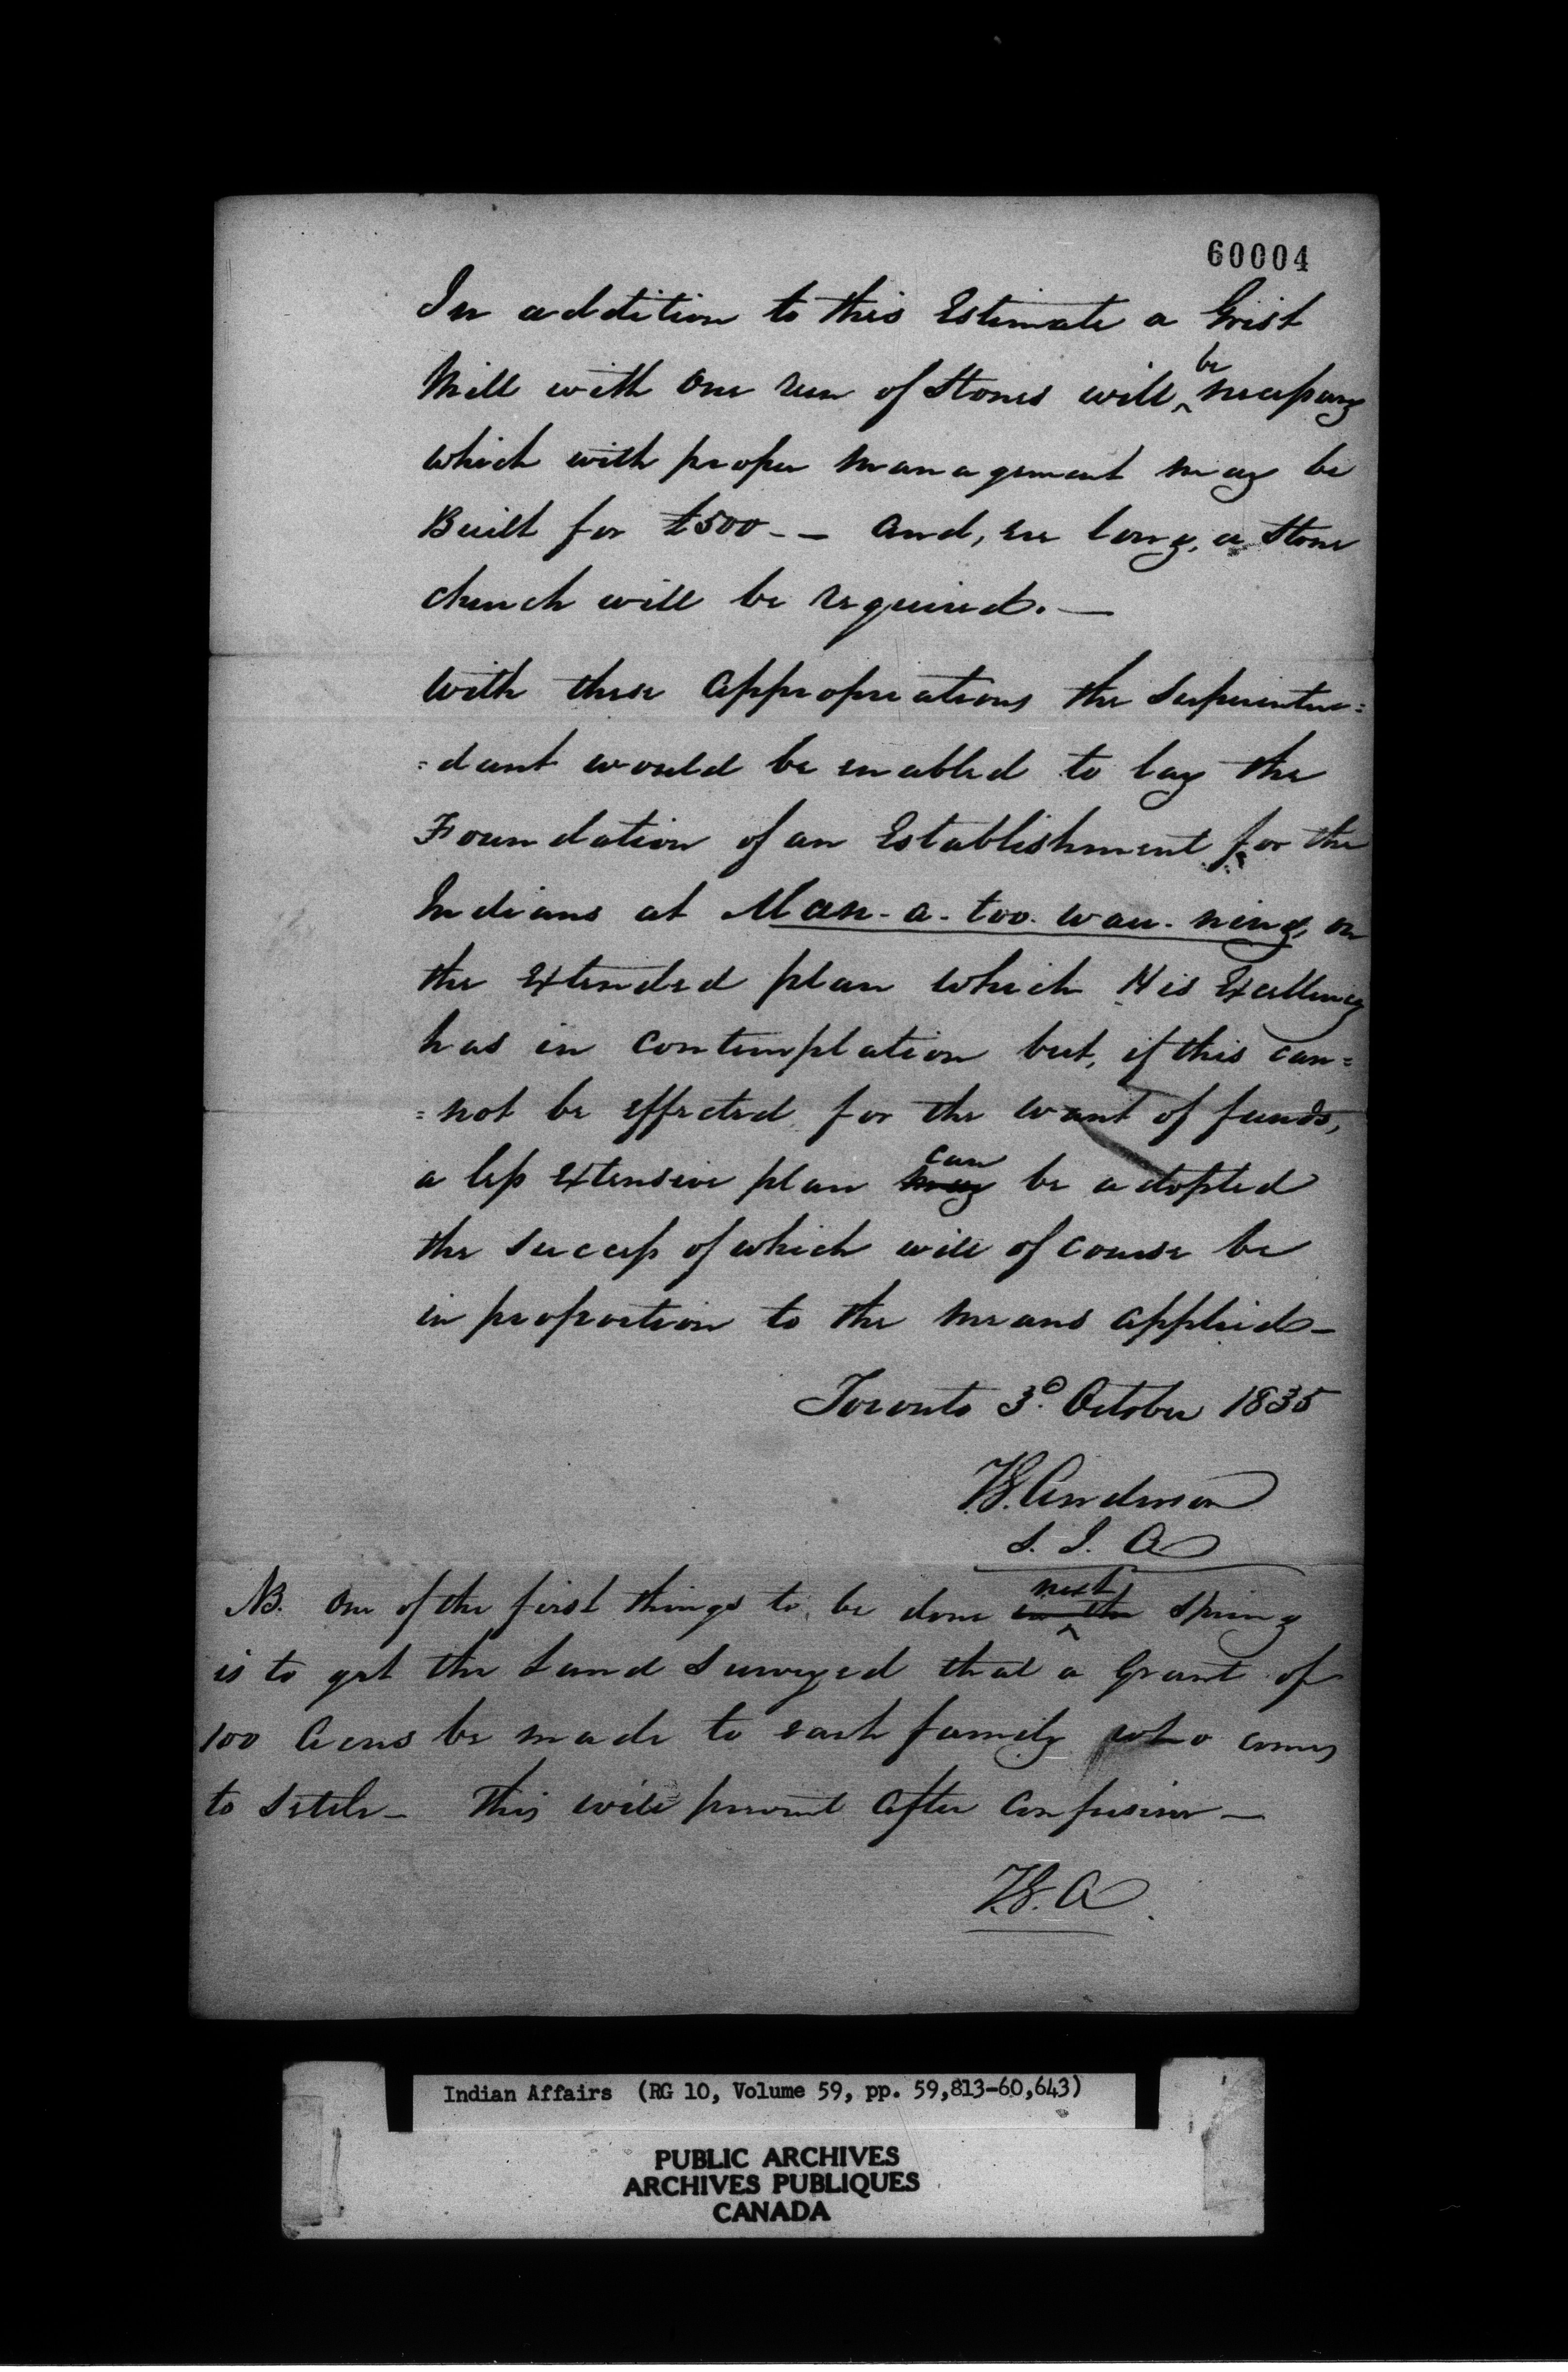 60004
In addition to this Estimate a Grist
be
Mill with one run of Stones will ^ necessary
which with proper management may be
Built for £500 - - and, ere long, a Stone
church will be required. —
With these appropriations the Superinten=
=dant would be enabled to lay the
Foundation of an Establishment for the
Indians at Man-a-too-wau-ning, on
the Extended plan which His Excellency
has in contemplation but, if this can=
=not be effected for the want of funds,
can
a less extensive plan may be adopted
the success of which will of course be
in proportion to the means applied —
Toronto 3d. October 1835
T.G. Anderson
S. I. A
next
NB. One of the first things to be done in the ^ Spring
is to get the Land Surveyed that a Grant of
100 Acres be made to each family who comes
to settle — This will prevent after confusion —
T.G. A.
Indian Affairs (RG 10, Volume 59, pp. 59,813-60,643)
PUBLIC ARCHIVES
ARCHIVES PUBLIQUES
CANADA